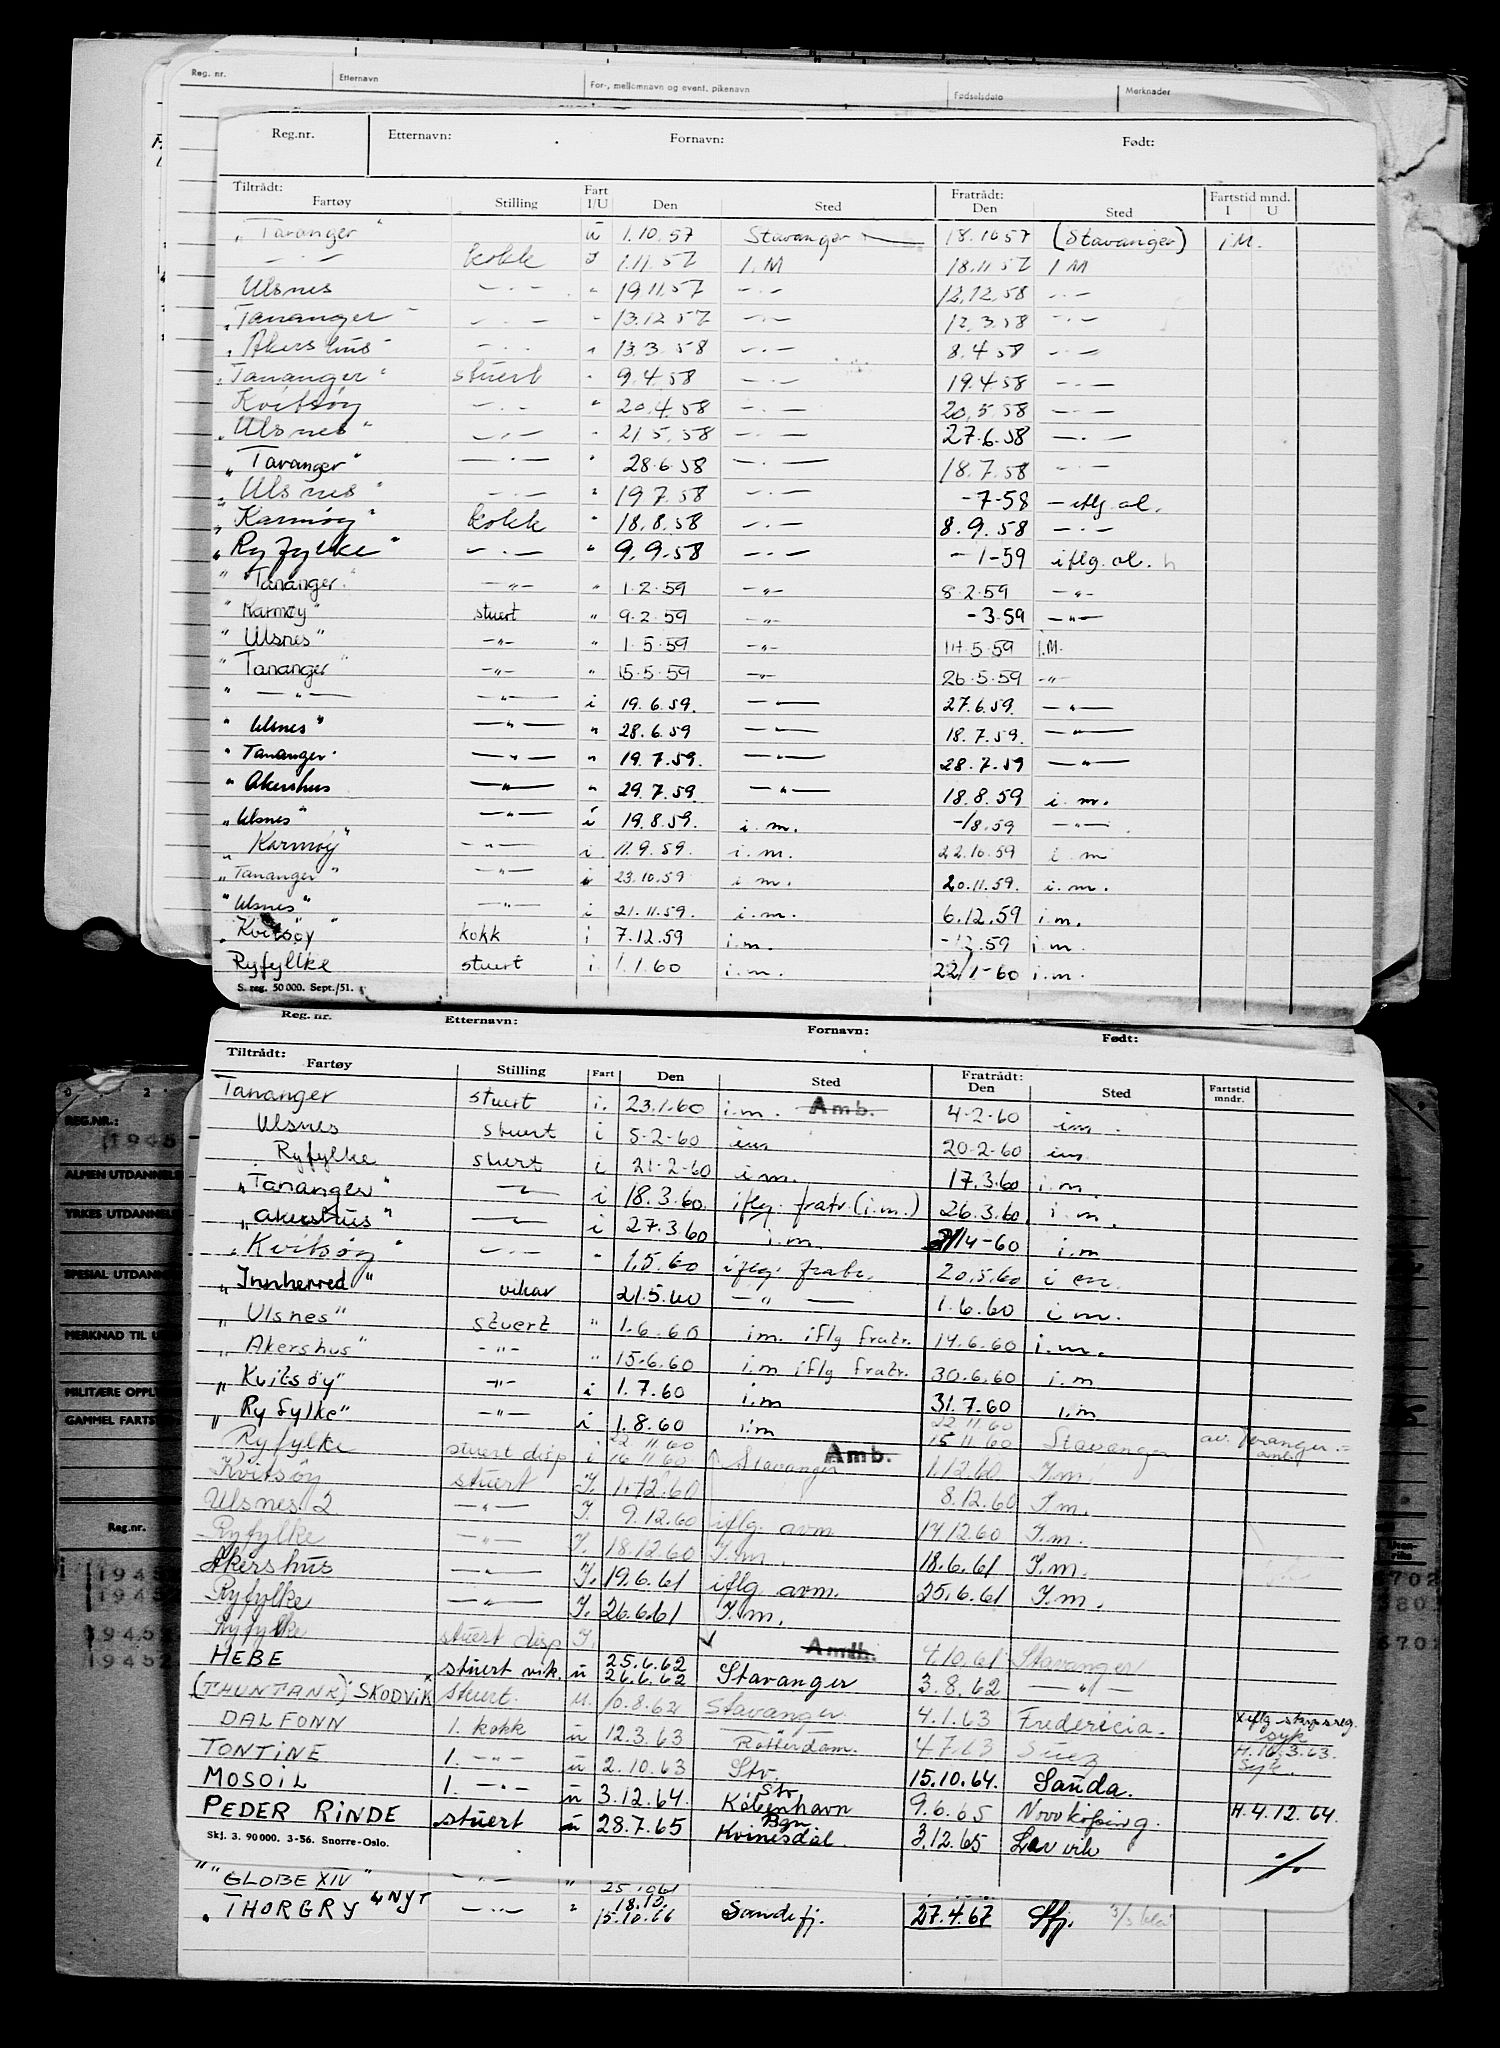 Reg. nr. Etternavn For-, mellomnavn og event. pikenavn Fødselsdato Merknader
Reg.nr. Etternavn: Fornavn: Født:
Tiltrådt: Fart Fratrådt: Fartstid mnd.
Fartøy Stilling I/U Den Sted Den Sted I U
„ Tananger " u 1.10.57 Stavanger 18.10.57 (Stavanger) i M.
— . — kokk I 1.11.57 I.M 18.11.57 I M
Ulsnes — . — " 19.11.57 — . — 12.12.58 — . —
„ Tananger " — . — " 13.12.57 — . — 12.3.58 — . —
„ Akershus " — . — " 13.3.58 — . — 8.4.58 — . —
„ Tananger " stuert " 9.4.58 — . — 19.4.58 — . —
Kvitsøy — . — " 20.4.58 — . — 20.5.58 — . —
„ Ulsnes " — . — " 21.5.58 — . — 27.6.58 — . —
„ Tananger " — . — " 28.6.58 — . — 18.7.58 — . —
„ Ulsnes " — . — " 19.7.58 — . — -7-58 — iflg. al.
„ Karmøy " kokk " 18.8.58 — . — 8.9.58 — . —
„ Ryfylke " — . — " 9.9.58 — . — - 1-59 iflg. al.
" Tananger " — " — " 1.2.59 — " — 8.2.59 — " —
" Karmøy " stuert " 9.2.59 — " — -3.59 — " —
" Ulsnes " — " — " 1.5.59 — " — 14.5.59 i.M.
" Tananger " — " — " 15.5.59 — " — 26.5.59 — " —
" — " — — " — i 19.6.59. — " — 27.6.59. — " —
" Ulsnes " — " — " 28.6.59 — " — 18.7.59. — " —
" Tananger " — " — " 19.7.59. — " — 28.7.59 — " —
" Akershus — " — " 29.7.59. — " — 18.8.59 i. m.
„ Ulsnes " — " — i 19.8.59. i. m. -/8.59 — " —
„ Karmøy " — " — i. 11.9.59. i. m. 22.10.59 i m
„ Tananger " — " — i 23.10.59 i m. 20.11.59. i. m.
" Ulsnes " — " — i 21.11.59. i. m. 6.12.59 i. m.
„ Kvitsøy " kokk i 7.12.59 i. m. -12.59 i. m.
Ryfyllke stuert i. 1.1.60 i. m. 22/1-60 i. m.
S. reg. 50 000. Sept./51.
Reg. nr. Etternavn: Fornavn: Født:
Tiltrådt: Fratrådt: Fartstid
Fartøy Stilling Fart Den Sted Den Sted mndr.
Tananger stuert i. 23.1.60 i. m. Amb. 4-2-60 im.
Ulsnes stuert i 5-2-60 im 20-2-60 im
Ryfylke stuert i 21-2-60 i m. 17.3.60 i. m.
„Tananger" — " — i 18.3.60. iflg. fratr. (i.m.) 26.3.60. i. m.
„Akershus" — " — i 27.3.60 i.m. /4-60 i. m
„ Kvitsøy " — . — " 1.5.60 iflg. fratr. 20.5.60 i m.
„ Innherred " vikar 21.5.60 — " — 1.6.60 i m.
„ Ulsnes" stuert " 1.6.60 im. iflg fratr. 14.6.60 i. m.
„ Akershus" — " — " 15.6.60 i.m iflg fratr. 30.6.60 i. m
„ Kvitsøy" — " — i 1.7.60 i.m 31.7.60 i.m
„ Ryfylke" — " — i 1.8.60 i.m 22 11 60
Ryfylke stuert disp i 22 11 60 16 11 60 Stavanger Amb. 15 11 60 Stavanger
Kvitsøy stuert I. 1.12.60 1.12.60 I. m.
Ulsnes 2 — " — I. 9.12.60 iflg. avm 8.12.60 I. m.
Ryfylke — " — I. 18.12.60 I. m. 17.12.60 I. m.
Akershus — " — I. 19.6.61 iflg. avm. 18.6.61 I. m.
Ryfylke — " — I. 26.6.61 I. m. 25.6.61 I. m.
Ryfylke stuert disp I. Amb. 4.10.61 Stavanger
HEBE stuert vik. u 25.6.62 26.6.62 Stavanger 3.8.62 — " —
(THUNTANK) SKODVIK stuert. u. 10.8.62 Stavanger 4.1.63 Fredericia. x iflg skipsreg.
DALFONN 1. kokk u 12.3.63 Rotterdam. 4.7.63 Suez syk H. 16.3.63. Syk.
TONTINE 1. — " — u 2.10.63 Stv. 15.10.64. Sauda.
MOSOIL 1. — " — u 3.12.64. Stv København 9.6.65 Norrköping. H. 4.12.64.
PEDER RINDE stuert u 28.7.65 Bgn Kvinesdal. 3.12.65 Larvik
Skj. 3. 90 000. 3-56. Snorre-Oslo.
" " GLOBE XIV " — " — "
„ THORGRY " NYT — " — " 18.10. 15.10.66 Sandefj. 27.4.67 Sfj.
REG.NR.:
ALMEN UTDANNELSE
YRKES UTDANNELSE
SPESIAL UTDANNELSE
MILITÆRE OPPL
Reg.nr.